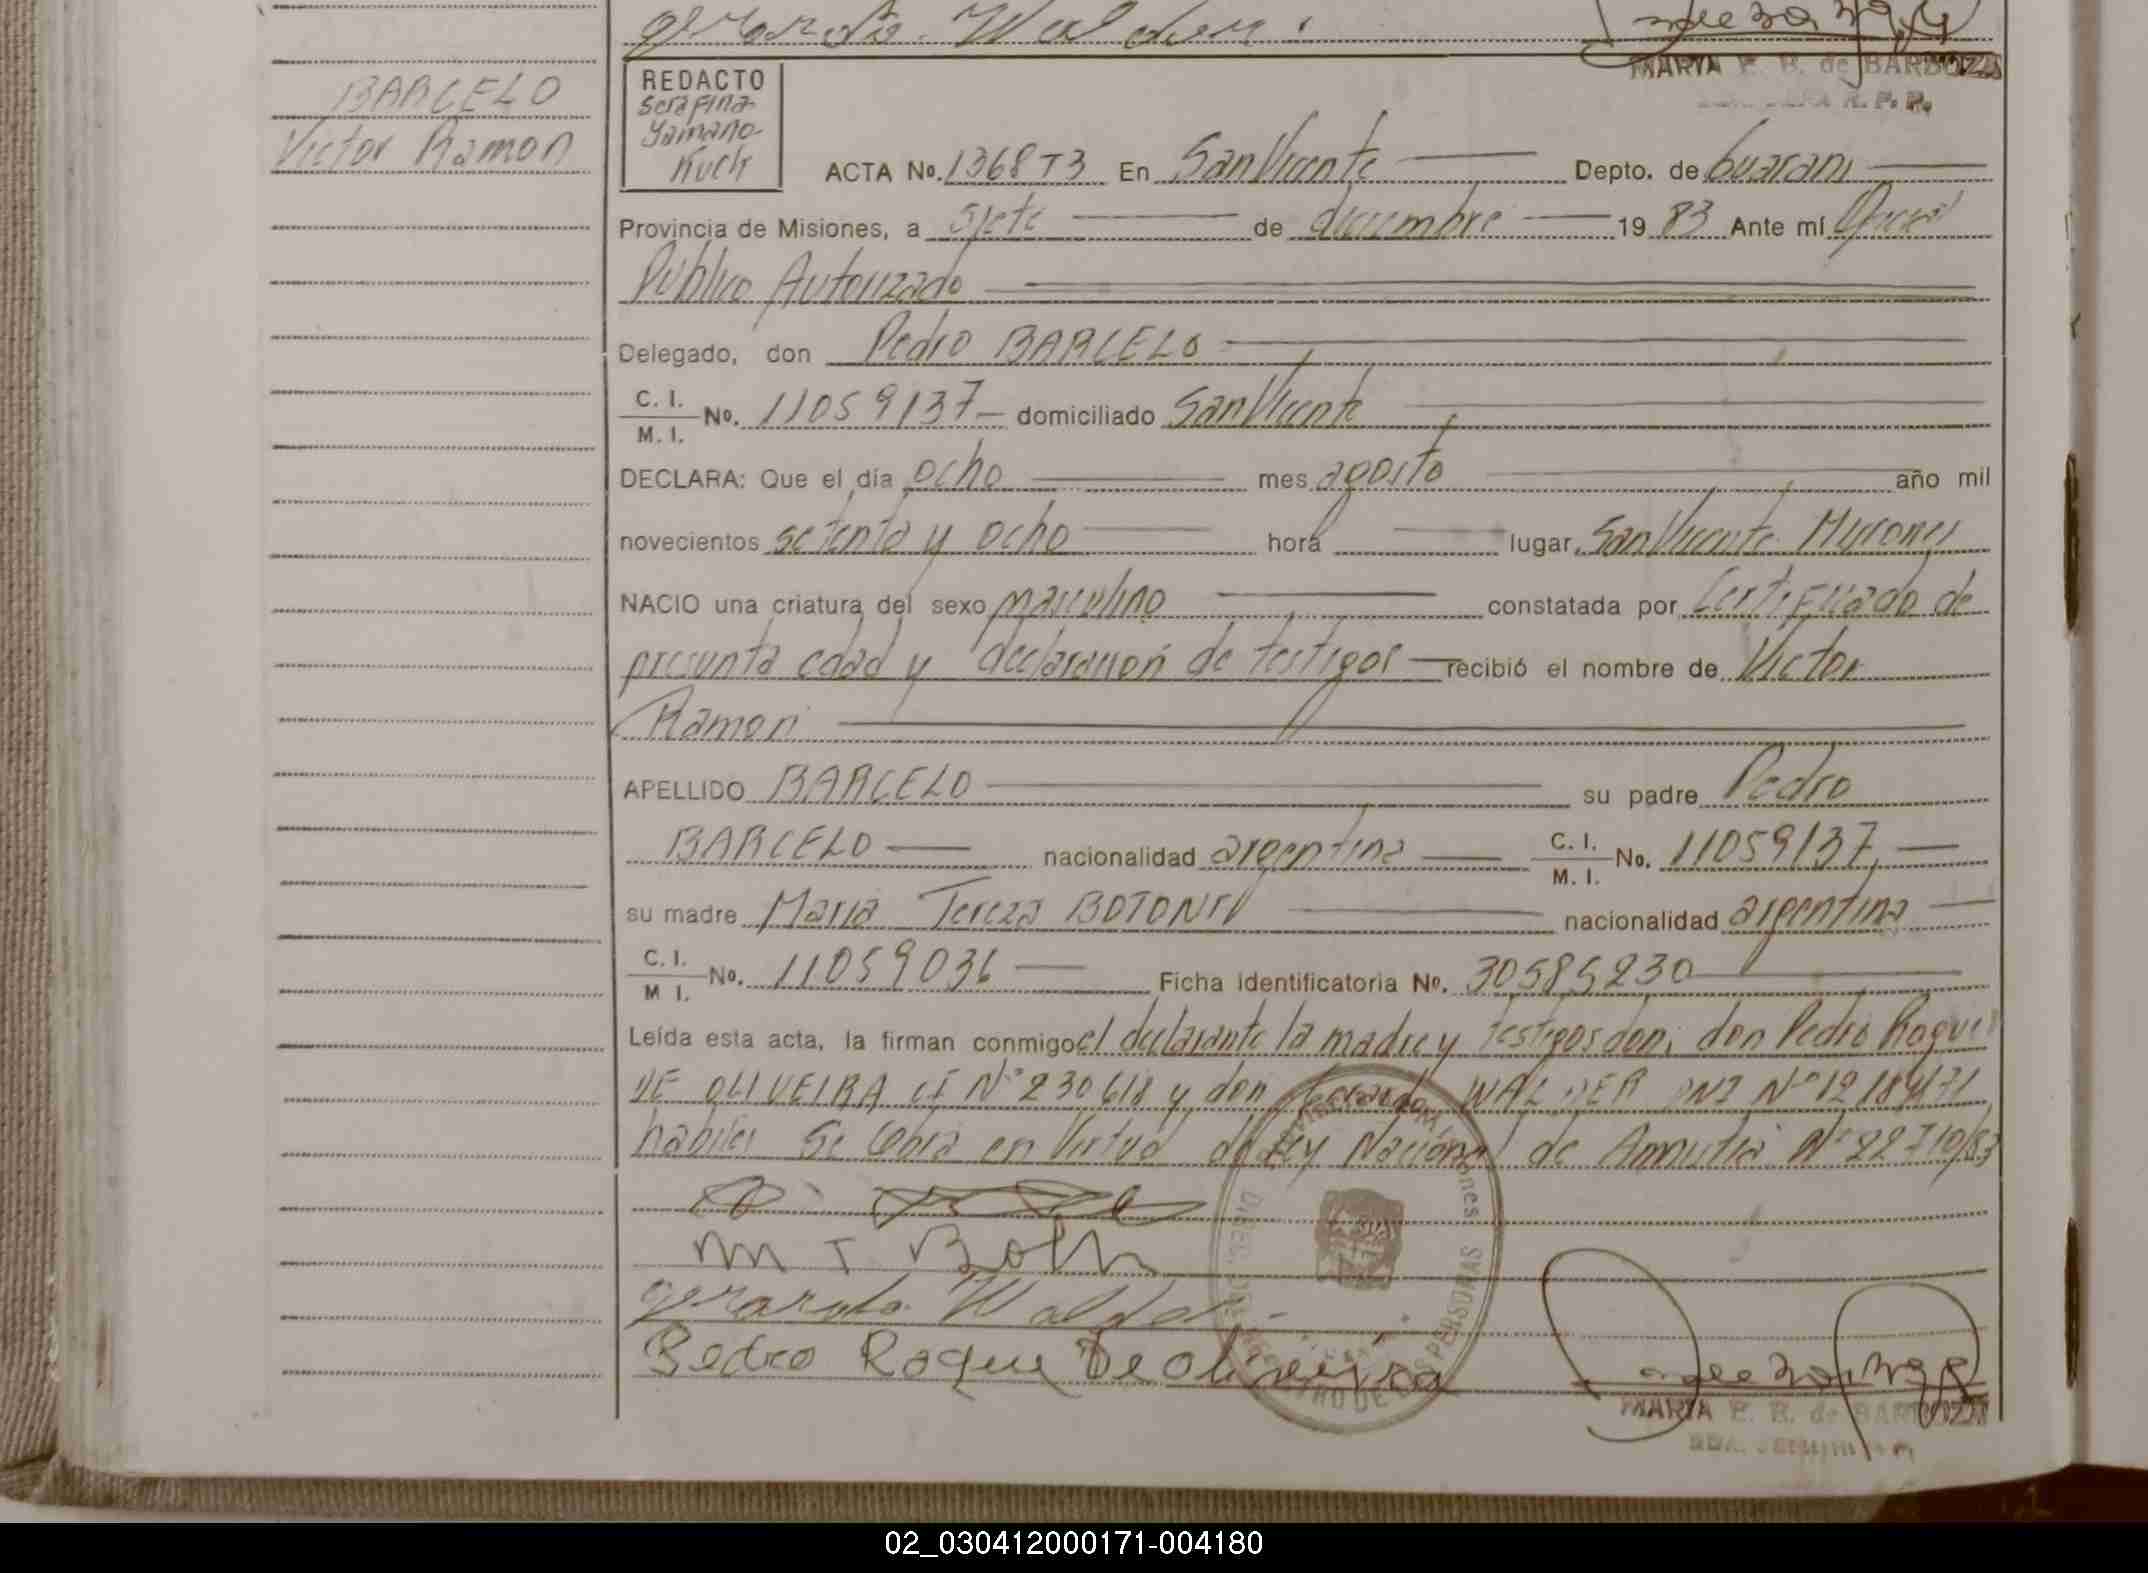 Gerardo Walder.
MARIA E. B. de BARBOZA
R. P. P.
BARCELO
Victor Ramon
REDACTO
Serafina
Yamano
Kuch
ACTA No. 1368 T3 En San Vicente Depto. de Guarani
Provincia de Misiones, a siete de diciembre 19 83 Ante mí Oficial
Público Autorizado
Delegado, don Pedro BARCELO
C. I.
M. I. No. 11059137 domiciliado San Vicente
DECLARA: Que el día ocho mes agosto año mil
novecientos setenta y ocho hora lugar San Vicente Misiones
NACIO una criatura del sexo masculino constatada por Certificado de
presunta edad y declaración de testigos recibió el nombre de Victor
Ramon
APELLIDO BARCELO su padre Pedro
BARCELO nacionalidad argentina C. I.
M. I. No. 11059137
su madre Maria Tereza nacionalidad argentina
C. I.
M I. No. 11059036 Ficha Identificatoria No. 30585230
Leída esta acta, la firman conmigo el declarante la madre y testigos don, don Pedro Roque
DE OLIVEIRA CI N° 230618 y don Gerardo WALDER DNI N°
habiles Se labra en Virtud de Ley Nacional de Amnistia N° 22710/83
M T Both
Gerardo Walder
Pedro Roque De Oliveira
MARIA E. B. de BARBOZA
02_030412000171-004180